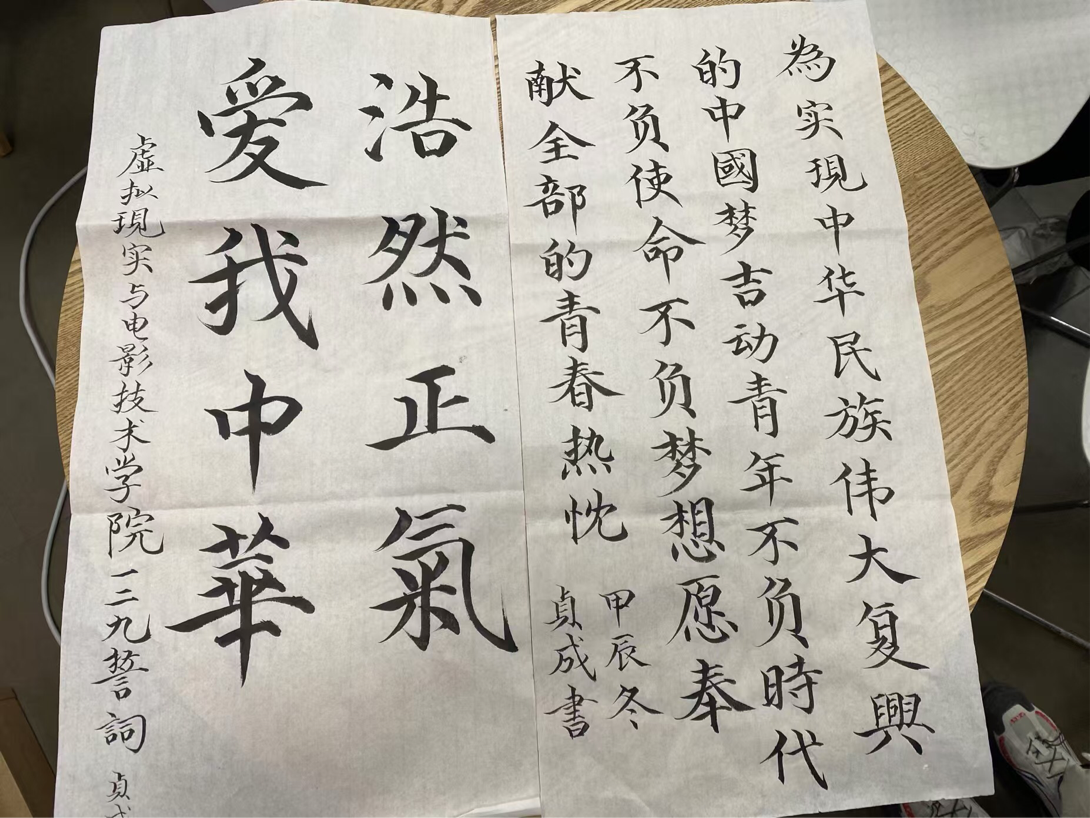 為实現中华民族伟大复興
的中國梦吉动青年不负時代
不负使命不负梦想愿奉
献全部的青春热忱
甲辰冬
貞成書
浩然正氣
爱我中華
虚拟現实与电影技术学院一二九誓詞 貞